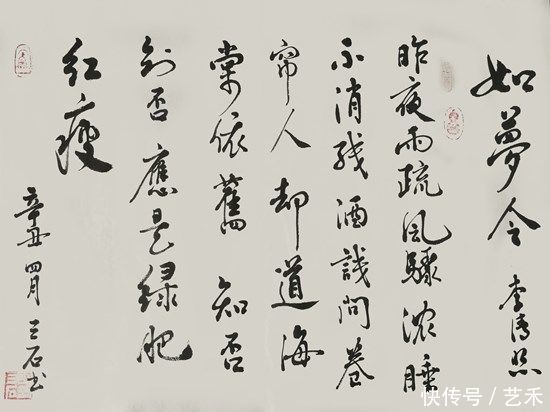 如夢令 李清照
昨夜雨疏风驟浓睡
不消残酒試問卷
帘人却道海
棠依舊 知否
知否 應是绿肥
红瘦
辛丑四月 三石书
快传号/艺禾